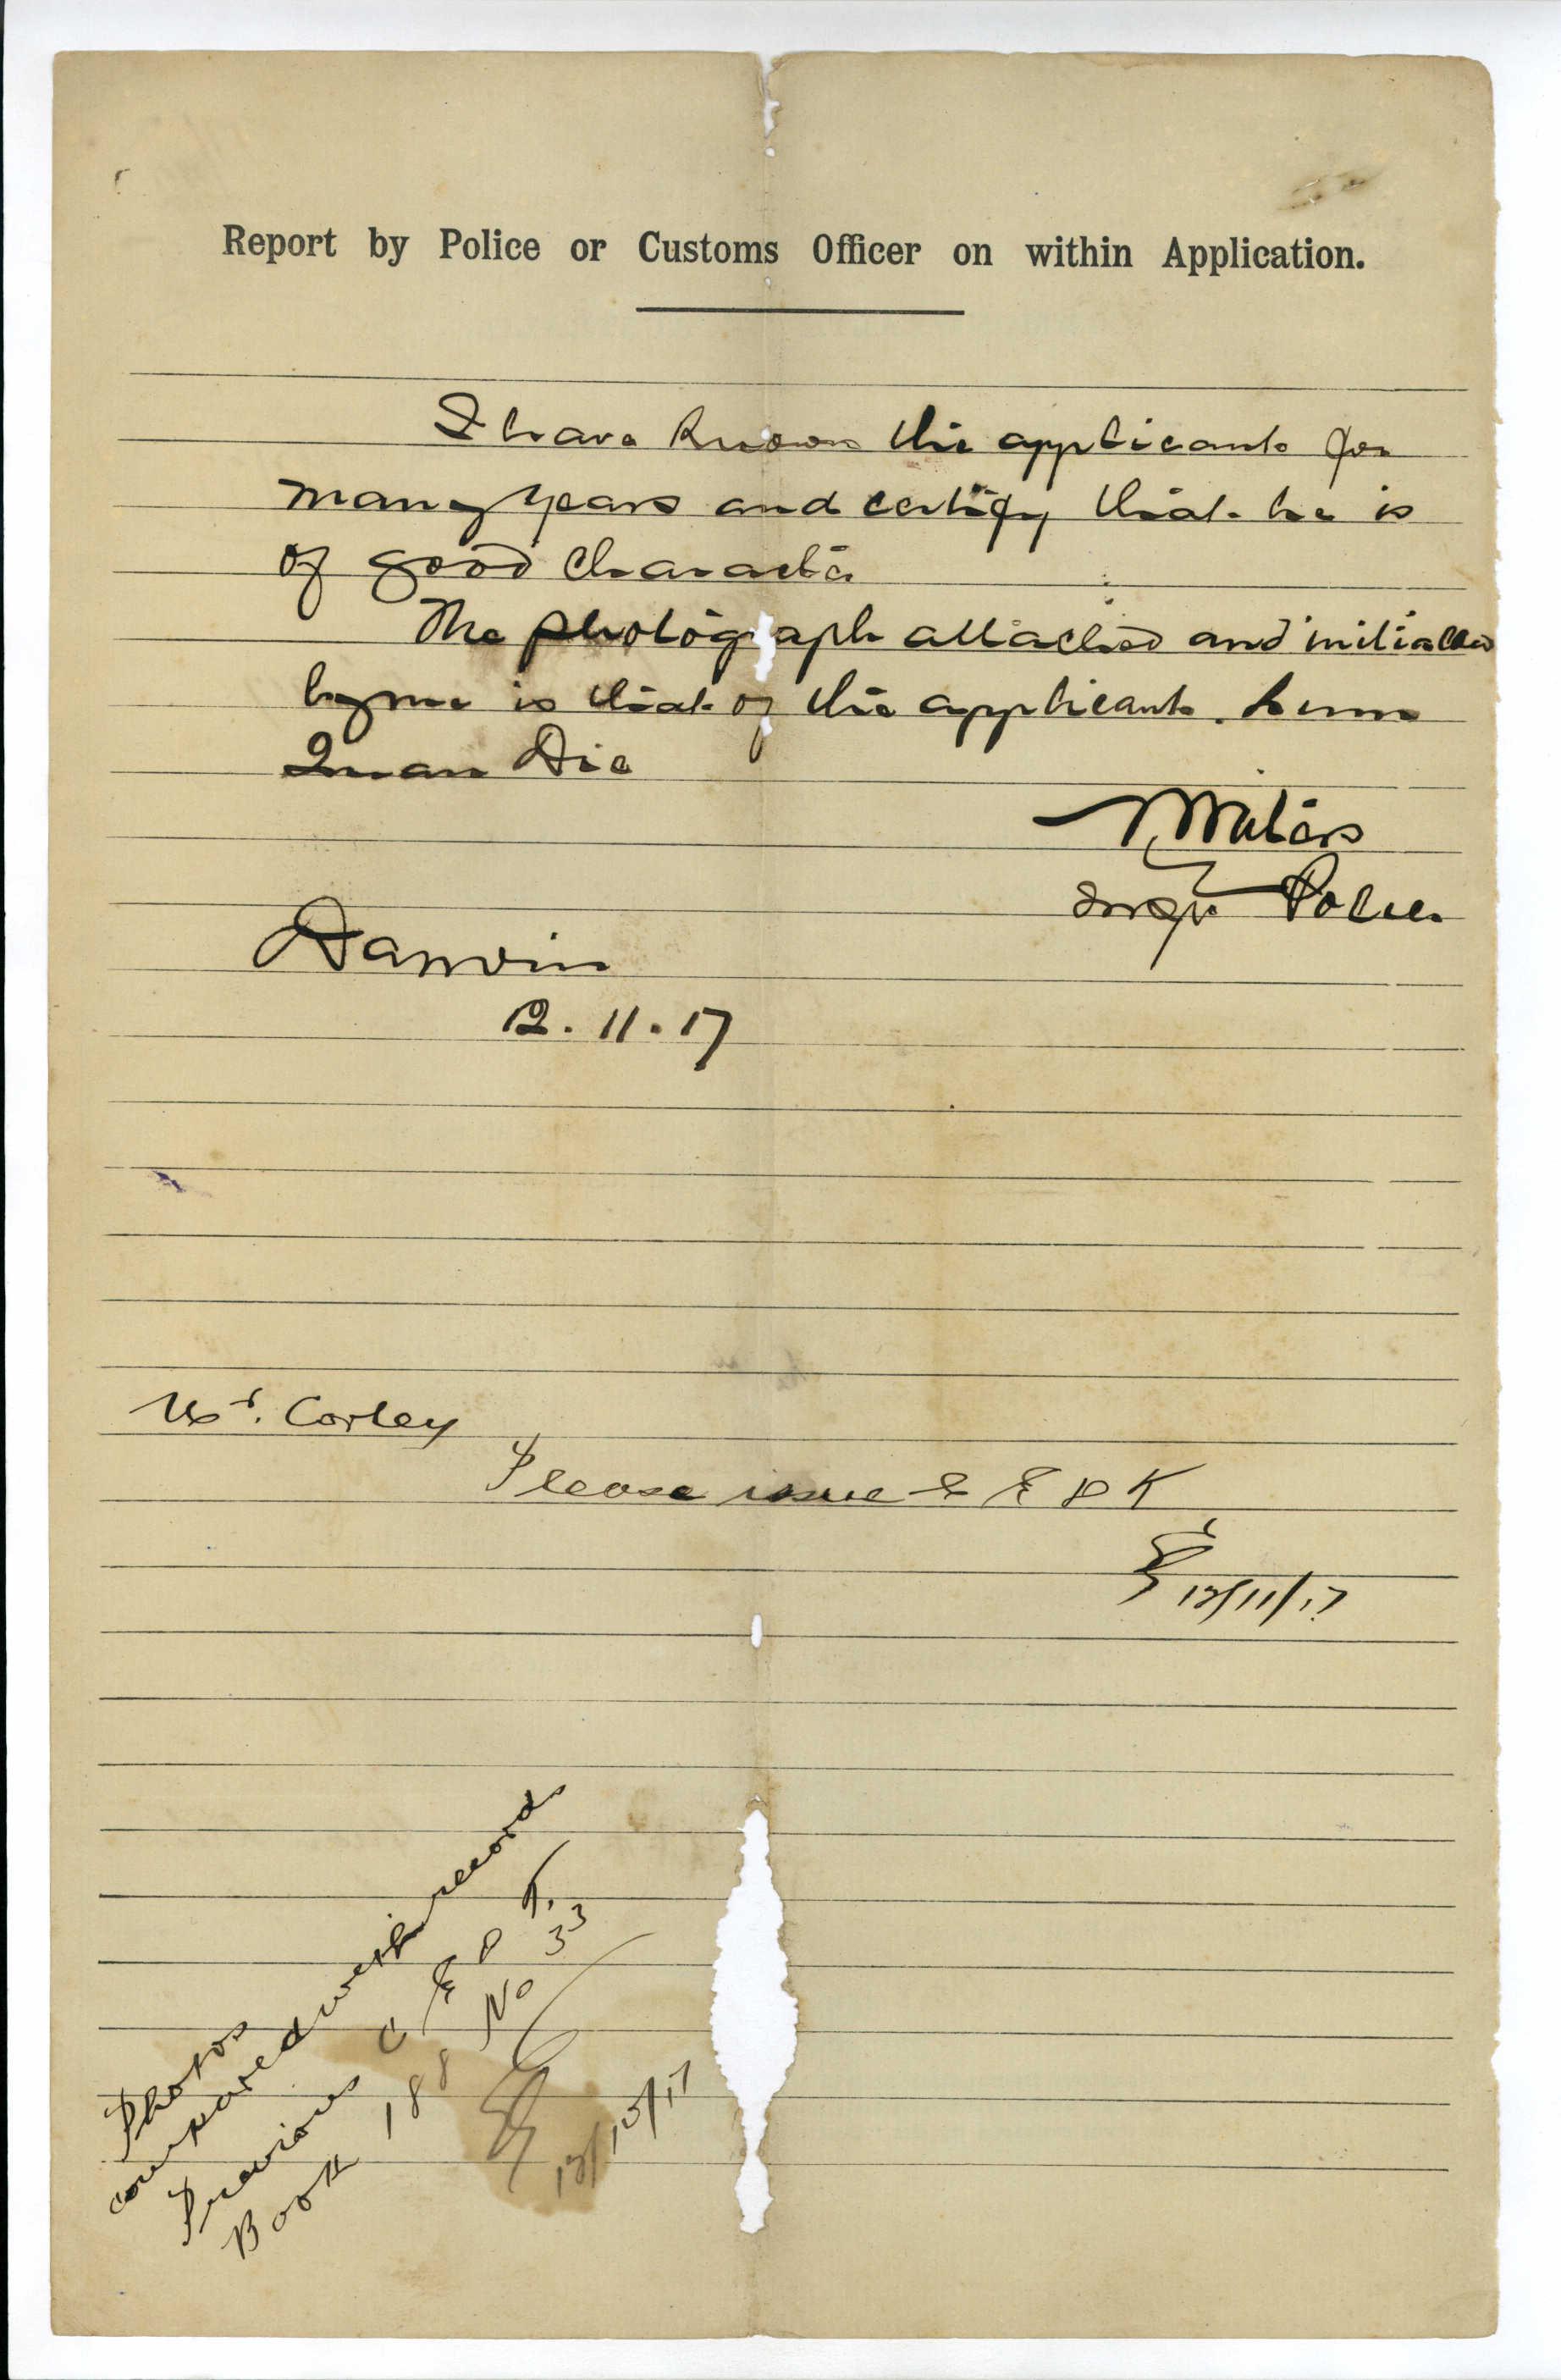 Report by Police or Customs Officer on within Application.
I have known the applicant for
many years and certify that he is
of good character
The photograph attached and initialled
by me is that of the applicant. Lum
Quan Dic
N Waters
Insp. Police
Darwin
12.11.17
Mr. Corley
Please issue C E D T
12/11/17
Photos
compared with records
Previous C E D T.
Book 188 No 33